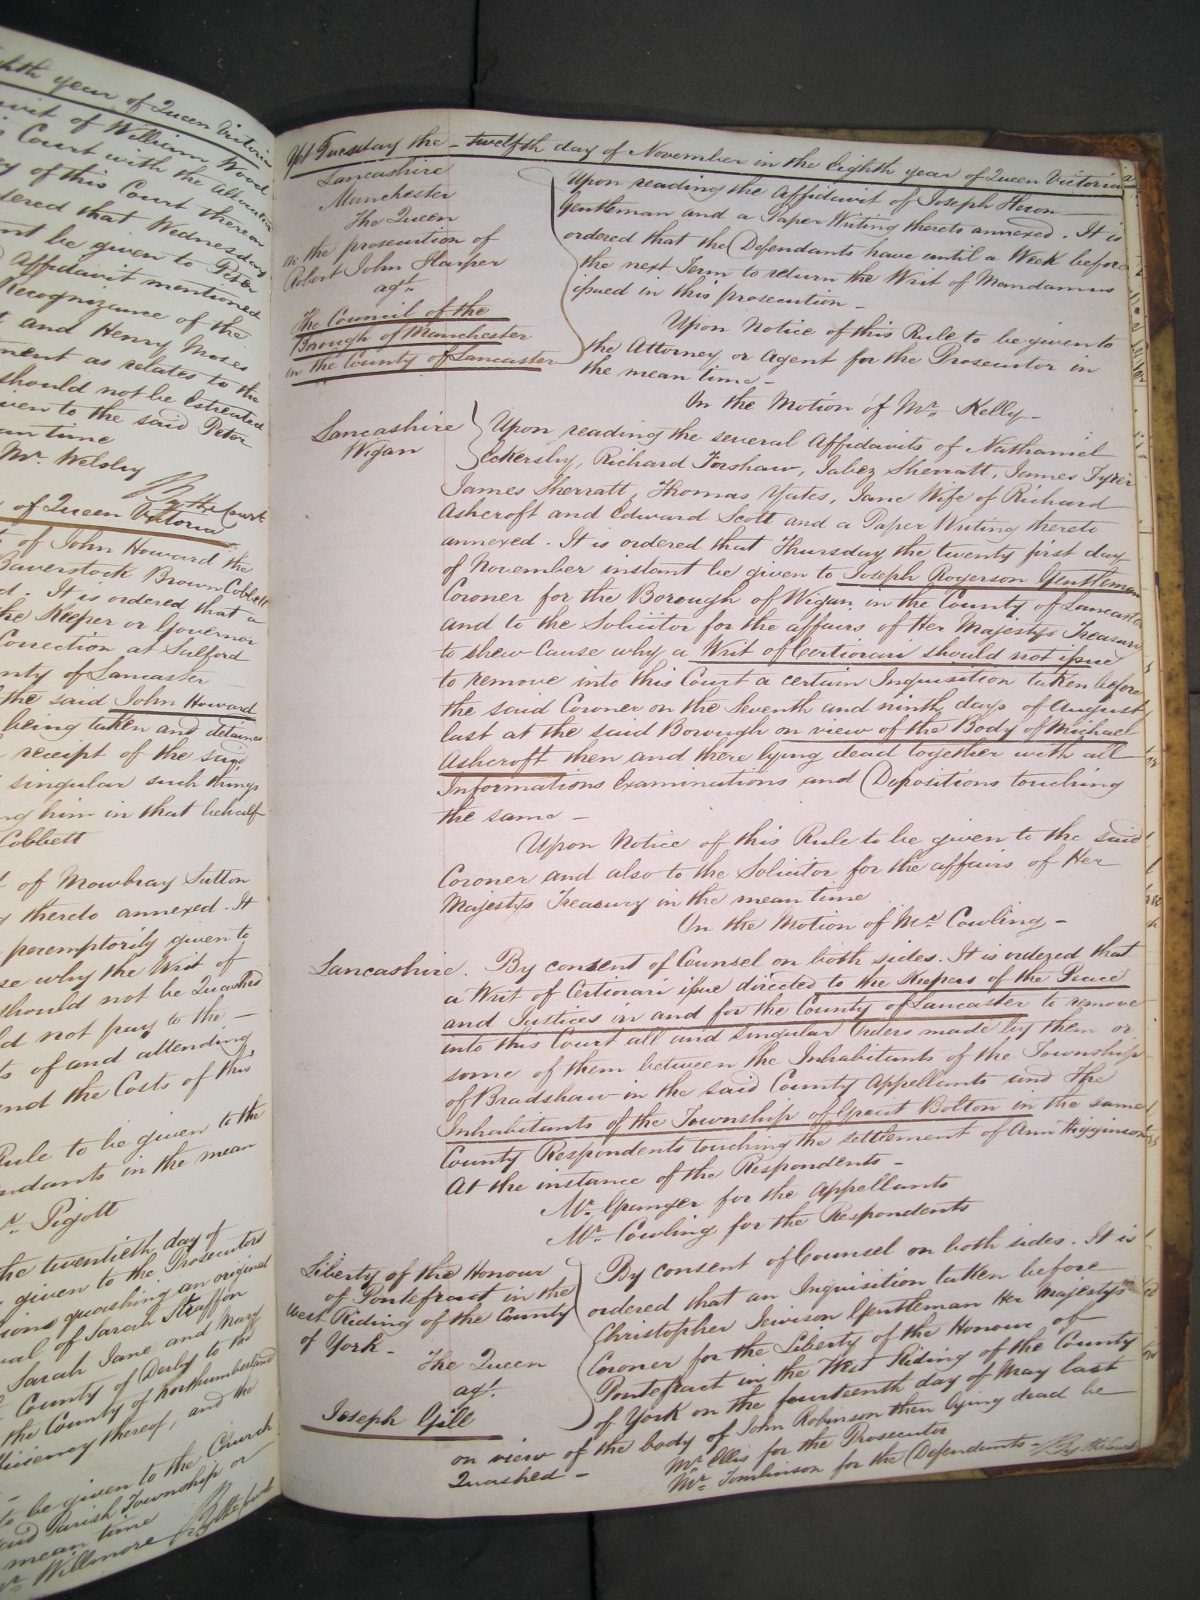 eighth year of Queen Victoria
of William Wood
Court with the allocatur
of this Court thereon
ordered that Wednesday
be given to Peter
Affidavit mentioned
Recognizance of the
and Henry Moses
as relates to the
should not be Estreated
given to the said Peter
mean time
Mr. Welsby
By the Court
of Queen Victoria
of John Howard the
Baverstock Brown Cobbett
It is ordered that a
the Keeper or Governor
Correction at Salford
County of Lancaster
the said John Howard
being taken and detained
receipt of the said
singular such things
him in that behalf
Cobbett
of Mowbray Sutton
thereto annexed. It
peremptorily given to
why the Writ of
should not be Quashed
not pay to the —
of and attending
and the Costs of this
Rule to be given to the
in the mean
Pigott
the twentieth day of
given to the Prosecutors
quashing an original
of Sarah Straffon
Sarah Jane and Mary
County of Derby to the
the County of Northumberland
thereof, and the
to be given to the Church
said Parish Township or
mean time
Willmore By the Court
Yet Tuesday the - twelfth day of November in the Eighth year of Queen Victoria
Lancashire
Manchester
The Queen
on the prosecution of
Robert John Harper
agt.
The Council of the
Borough of Manchester
in the County of Lancaster
Upon reading the Affidavit of Joseph Heron
Gentleman and a Paper Writing thereto annexed. It is
ordered that the Defendants have until a Week before
the next Term to return the Writ of Mandamus
issued in this prosecution -
Upon Notice of this Rule to be given to
the Attorney or Agent for the Prosecutor in
the mean time -
On the Motion of Mr. Kelly -
Lancashire
Wigan
Upon reading the several Affidavits of Nathaniel
Eckersley, Richard Forshaw, Jabez Sherratt, James Tyrer
James Sherratt, Thomas Yates, Jane Wife of Richard
Ashcroft and Edward Scott and a Paper Writing thereto
annexed. It is ordered that Thursday the twenty first day
of November instant be given to Joseph Rogerson Gentleman
Coroner for the Borough of Wigan in the County of Lancaster
and to the Solicitor for the affairs of Her Majesty's Treasury
to shew Cause why a Writ of Certiorari should not issue
to remove into this Court a certain Inquisition taken before
the said Coroner on the Seventh and ninth days of August
last at the said Borough on view of the Body of Michael
Ashcroft then and there lying dead together with all
Informations Examinations and Depositions touching
the same -
Upon Notice of this Rule to be given to the said
Coroner and also to the Solicitor for the affairs of Her
Majesty's Treasury in the mean time
On the Motion of Mr. Cowling -
Lancashire. By consent of Counsel on both sides. It is ordered that
a Writ of Certiorari issue directed to the Keepers of the Peace
and Justices in and for the County of Lancaster to remove
into this Court all and singular Orders made by them or
some of them between the Inhabitants of the Township
of Bradshaw in the said County Appellants and the
Inhabitants of the Township of Great Bolton in the same
County Respondents touching the settlement of Ann Higginson
At the instance of the Respondents -
Mr. Granger for the Appellants
Mr. Cowling for the Respondents
Liberty of the Honour
of Pontefract in the
West Riding of the County
of York -
The Queen
agt.
Joseph Gill
By consent of Counsel on both sides. It is
ordered that an Inquisition taken before
Christopher Jewison Gentleman Her Majesty's
Coroner for the Liberty of the Honour of
Pontefract in the West Riding of the County
of York on the fourteenth day of May last
on view of the body of John Robinson then lying dead be
Quashed -
Mr. Ellis for the Prosecutor
Mr. Tomlinson for the Defendants - By the Court